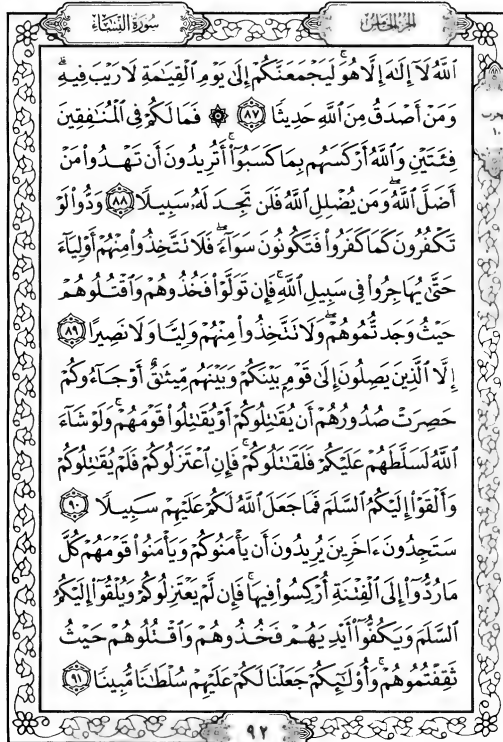 سُورَةُ النِّسَاءِ
الجزء الخامس
ٱللَّهُ لَآ إِلَٰهَ إِلَّا هُوَۚ لَيَجۡمَعَنَّكُمۡ إِلَىٰ يَوۡمِ ٱلۡقِيَٰمَةِ لَا رَيۡبَ فِيهِۗ
وَمَنۡ أَصۡدَقُ مِنَ ٱللَّهِ حَدِيثٗا ٨٧ ۞ فَمَا لَكُمۡ فِي ٱلۡمُنَٰفِقِينَ
فِئَتَيۡنِ وَٱللَّهُ أَرۡكَسَهُم بِمَا كَسَبُوٓاْۚ أَتُرِيدُونَ أَن تَهۡدُواْ مَنۡ
أَضَلَّ ٱللَّهُۖ وَمَن يُضۡلِلِ ٱللَّهُ فَلَن تَجِدَ لَهُۥ سَبِيلٗا ٨٨ وَدُّواْ لَوۡ
تَكۡفُرُونَ كَمَا كَفَرُواْ فَتَكُونُونَ سَوَآءٗۖ فَلَا تَتَّخِذُواْ مِنۡهُمۡ أَوۡلِيَآءَ
حَتَّىٰ يُهَاجِرُواْ فِي سَبِيلِ ٱللَّهِۚ فَإِن تَوَلَّوۡاْ فَخُذُوهُمۡ وَٱقۡتُلُوهُمۡ
حَيۡثُ وَجَدتُّمُوهُمۡۖ وَلَا تَتَّخِذُواْ مِنۡهُمۡ وَلِيّٗا وَلَا نَصِيرًا ٨٩
إِلَّا ٱلَّذِينَ يَصِلُونَ إِلَىٰ قَوۡمِۭ بَيۡنَكُمۡ وَبَيۡنَهُم مِّيثَٰقٌ أَوۡ جَآءُوكُمۡ
حَصِرَتۡ صُدُورُهُمۡ أَن يُقَٰتِلُوكُمۡ أَوۡ يُقَٰتِلُواْ قَوۡمَهُمۡۚ وَلَوۡ شَآءَ
ٱللَّهُ لَسَلَّطَهُمۡ عَلَيۡكُمۡ فَلَقَٰتَلُوكُمۡۚ فَإِنِ ٱعۡتَزَلُوكُمۡ فَلَمۡ يُقَٰتِلُوكُمۡ
وَأَلۡقَوۡاْ إِلَيۡكُمُ ٱلسَّلَمَ فَمَا جَعَلَ ٱللَّهُ لَكُمۡ عَلَيۡهِمۡ سَبِيلٗا ٩٠
سَتَجِدُونَ ءَاخَرِينَ يُرِيدُونَ أَن يَأۡمَنُوكُمۡ وَيَأۡمَنُواْ قَوۡمَهُمۡ كُلَّ
مَا رُدُّوٓاْ إِلَى ٱلۡفِتۡنَةِ أُرۡكِسُواْ فِيهَاۚ فَإِن لَّمۡ يَعۡتَزِلُوكُمۡ وَيُلۡقُوٓاْ إِلَيۡكُمُ
ٱلسَّلَمَ وَيَكُفُّوٓاْ أَيۡدِيَهُمۡ فَخُذُوهُمۡ وَٱقۡتُلُوهُمۡ حَيۡثُ
ثَقِفۡتُمُوهُمۡۚ وَأُوْلَٰٓئِكُمۡ جَعَلۡنَا لَكُمۡ عَلَيۡهِمۡ سُلۡطَٰنٗا مُّبِينٗا ٩١
٩٢